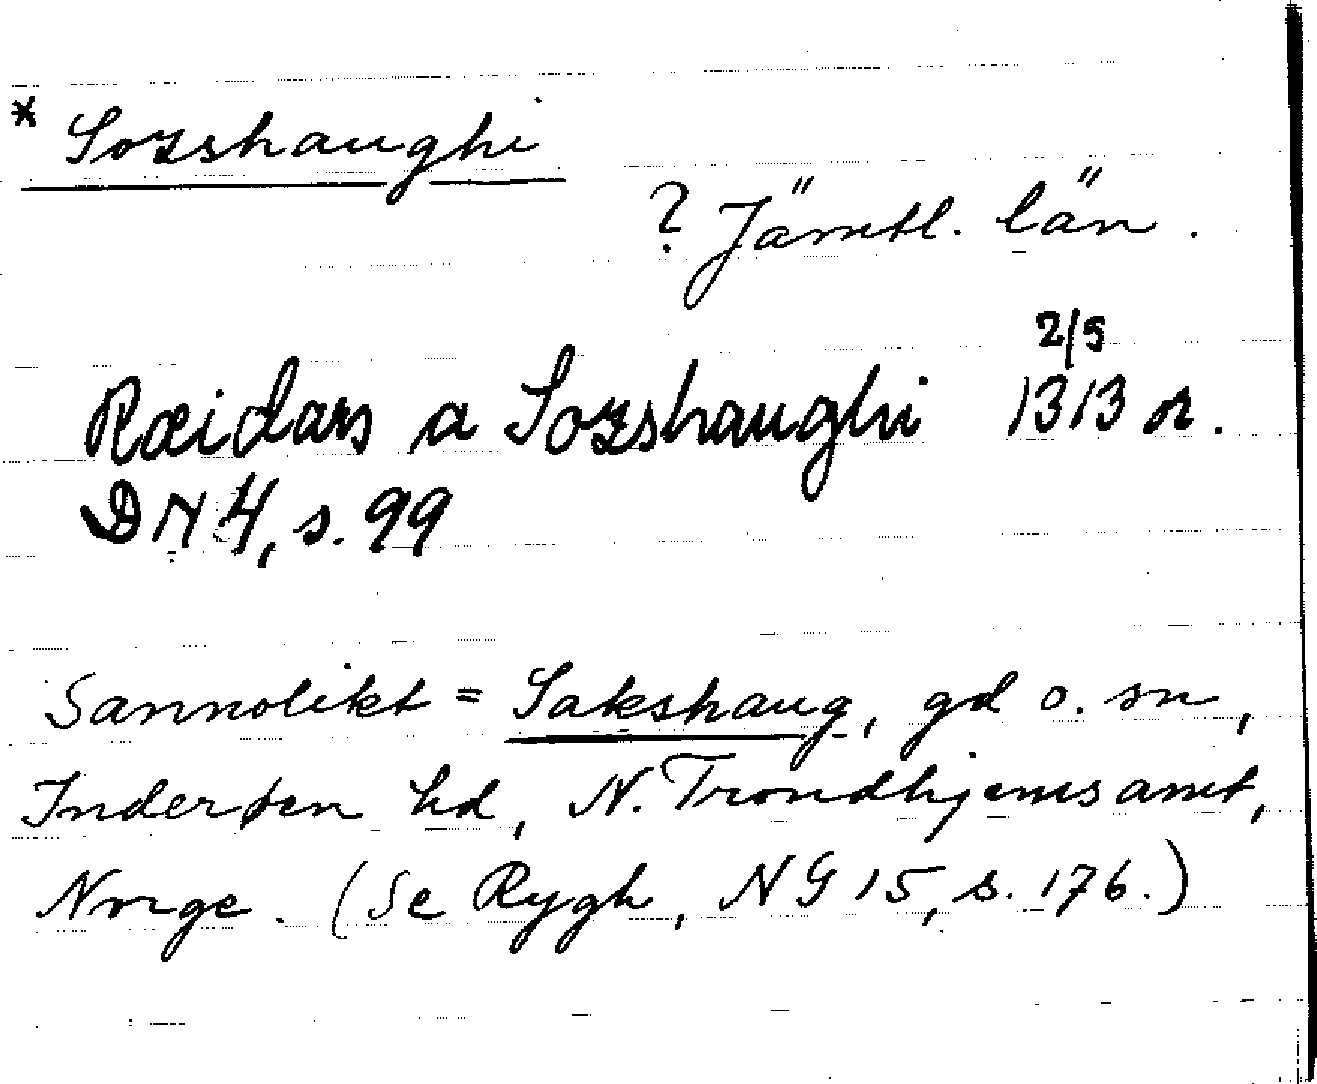 * Sozshaughi
? Jämtl. län.
Ræidars a Sozshaughi 1313 2/5 or.
DN 4, s. 99
Sannolikt = Sakshaug, gd o. sn,
Inderøen hd, N. Trondhjems amt,
Norge. (Se Rygh, NG 15, s. 176.)